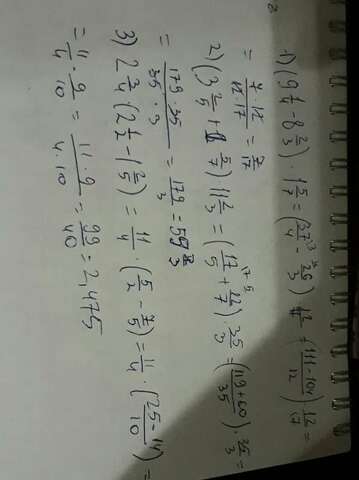 1) (9 1/4 - 8 2/3) · 1 5/7 = (37/4 - 26/3) · 12/7 = (111-104/12) 12/17 =
= 7/12 · 12/17 = 7/17
2) (3 2/5 + 1 5/7) 11 2/3 = (17/5 + 12/7) · 35/3 = (119+60/35) · 35/3 =
= 179 · 35/35 · 3 = 179/3 = 59 2/3
3) 2 3/4 (2 1/2 - 1 2/5) = 11/4 · (5/2 - 7/5) = 11/4 · (25-14/10) =
= 11/4 · 9/10 = 11 · 9/4 · 10 = 99/40 = 2,475